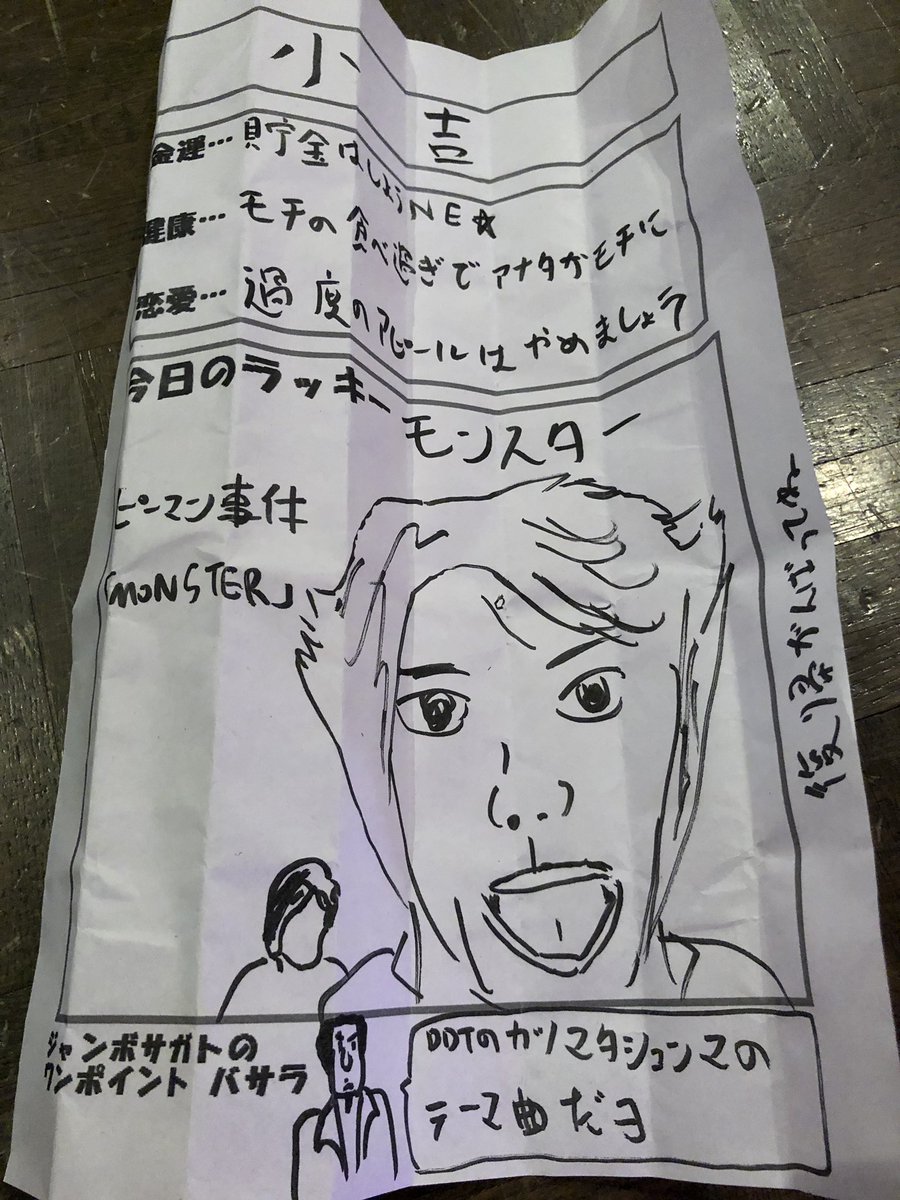 小吉
金運…貯金はしようNE☆
健康…モチの食べ過ぎでアナタがモチに
恋愛…過度のアピールはやめましょう
今日のラッキー
モンスター
ピンマン事件
「MONSTER」
ジャンボサガトの
ワンポイント バサラ
DDTのカツマタシュンマの
テーマ曲だヨ